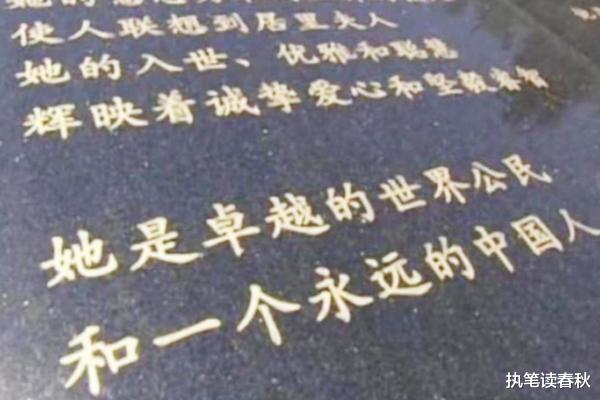 使人联想到居里夫人
她的入世、优雅和聪慧
辉映着诚挚爱心和坚毅睿智
她是卓越的世界公民
和一个永远的中国人
执笔读春秋